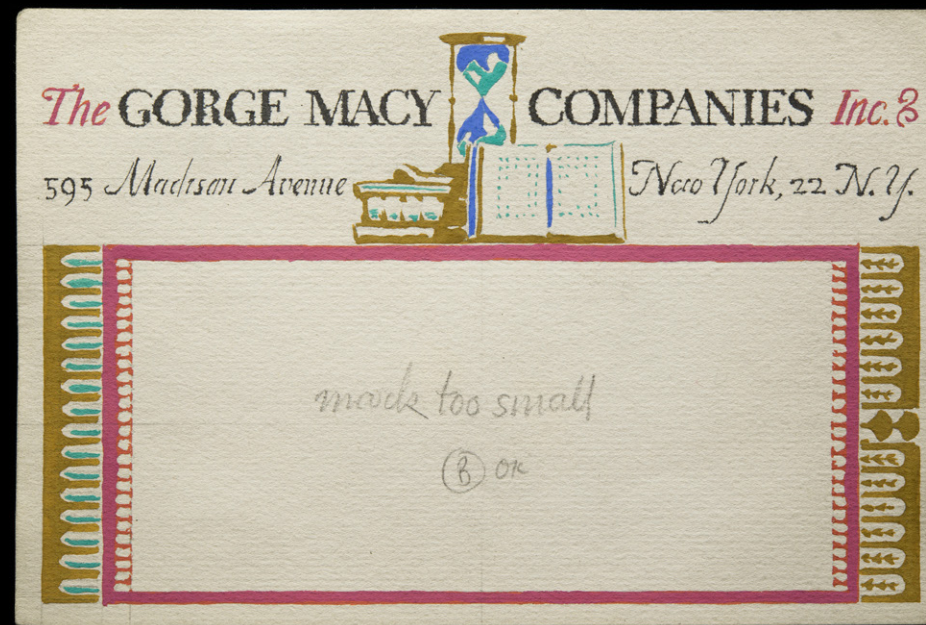 The GORGE MACY COMPANIES Inc.
595 Madison Avenue New York, 22 N.Y.
mock too small
B OK